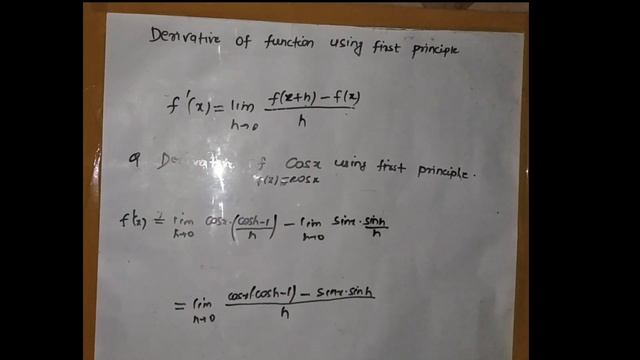 Derivative of function using first principle
f'(x) = lim h→0 f(x+h) - f(x) / h
Q Derivative of Cosx using first principle.
f(x) = cosx
f'(x) = lim h→0 cosx.(cosh-1 / h) - lim h→0 sinx. sinh / h
= lim h→0 cosx(cosh-1) - sinx.sinh / h